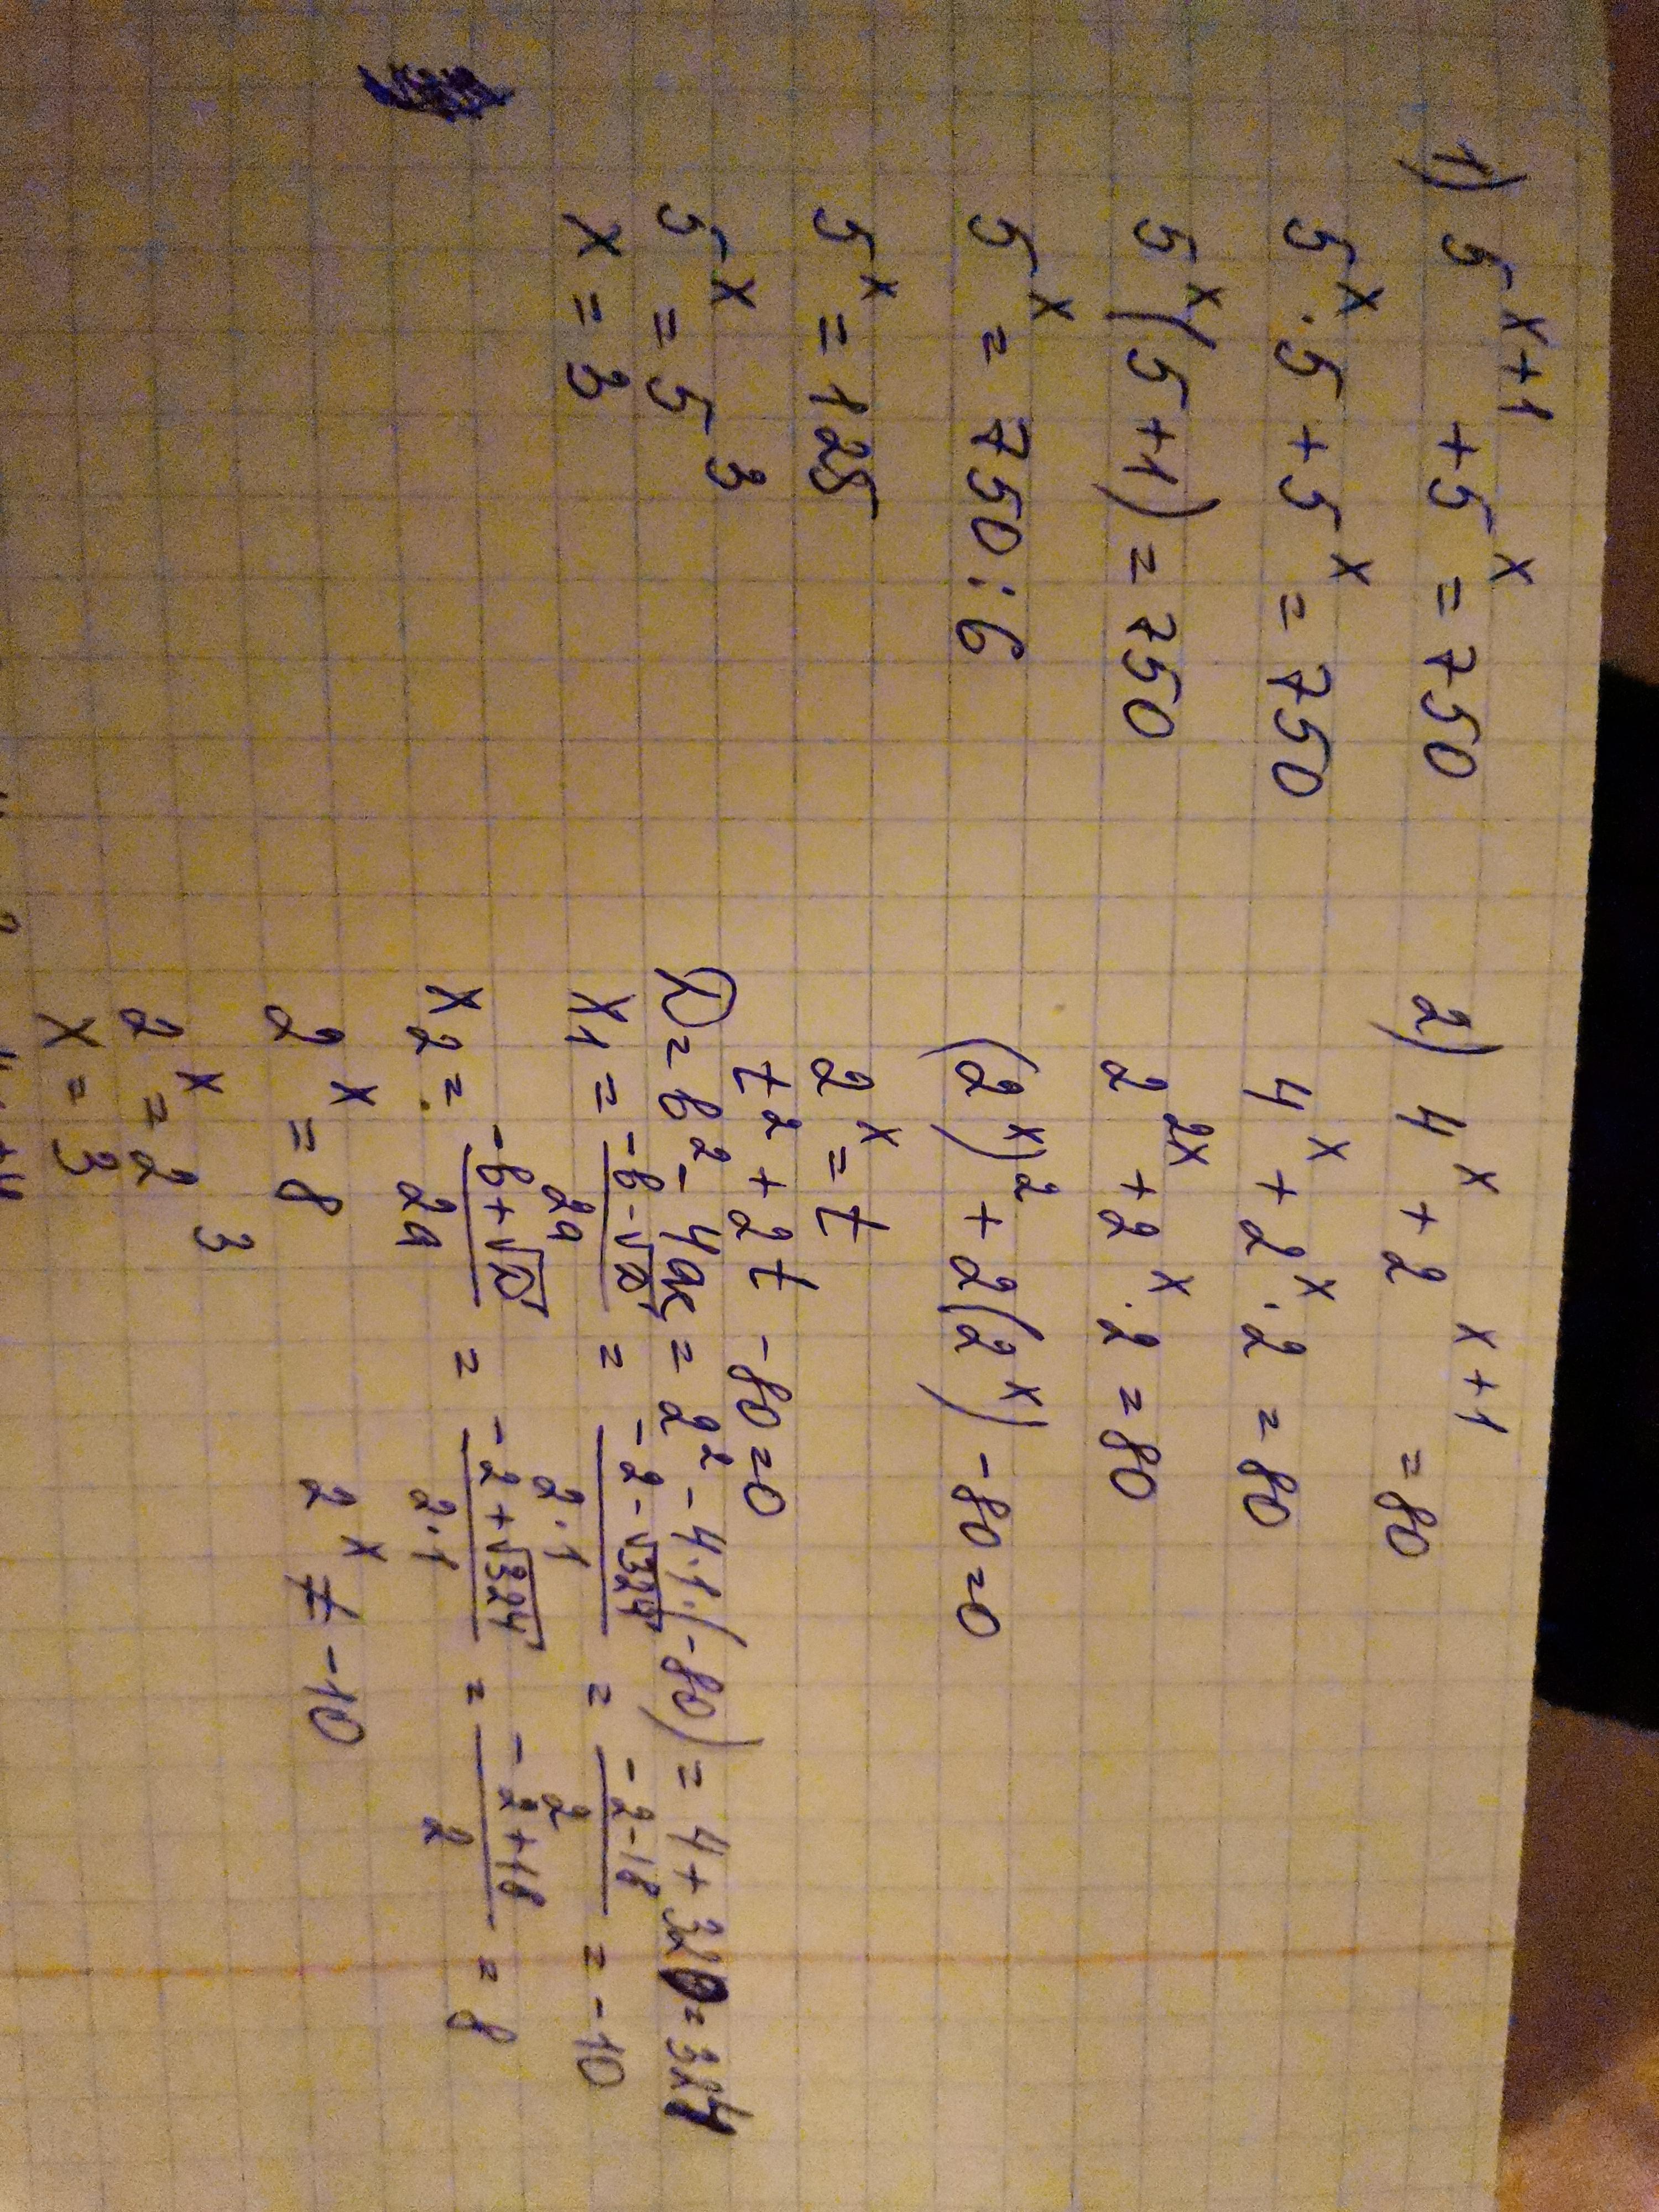 1) 5^{x+1} + 5^x = 750
5^x · 5 + 5^x = 750
5^x (5 + 1) = 750
5^x = 750 : 6
5^x = 125
5^x = 5^3
x = 3
2) 4^x + 2^{x+1} = 80
4^x + 2^x · 2 = 80
2^{2x} + 2^x · 2 = 80
(2^x)^2 + 2(2^x) - 80 = 0
2^x = t
t^2 + 2t - 80 = 0
D = b^2 - 4ac = 2^2 - 4·1·(-80) = 4 + 320 = 324
x1 = (-b - √D)/(2a) = (-2 - √324)/(2·1) = (-2 - 18)/2 = -10
x2 = (-b + √D)/(2a) = (-2 + √324)/(2·1) = (-2 + 18)/2 = 8
2^x = 8 2^x ≠ -10
2^x = 2^3
x = 3